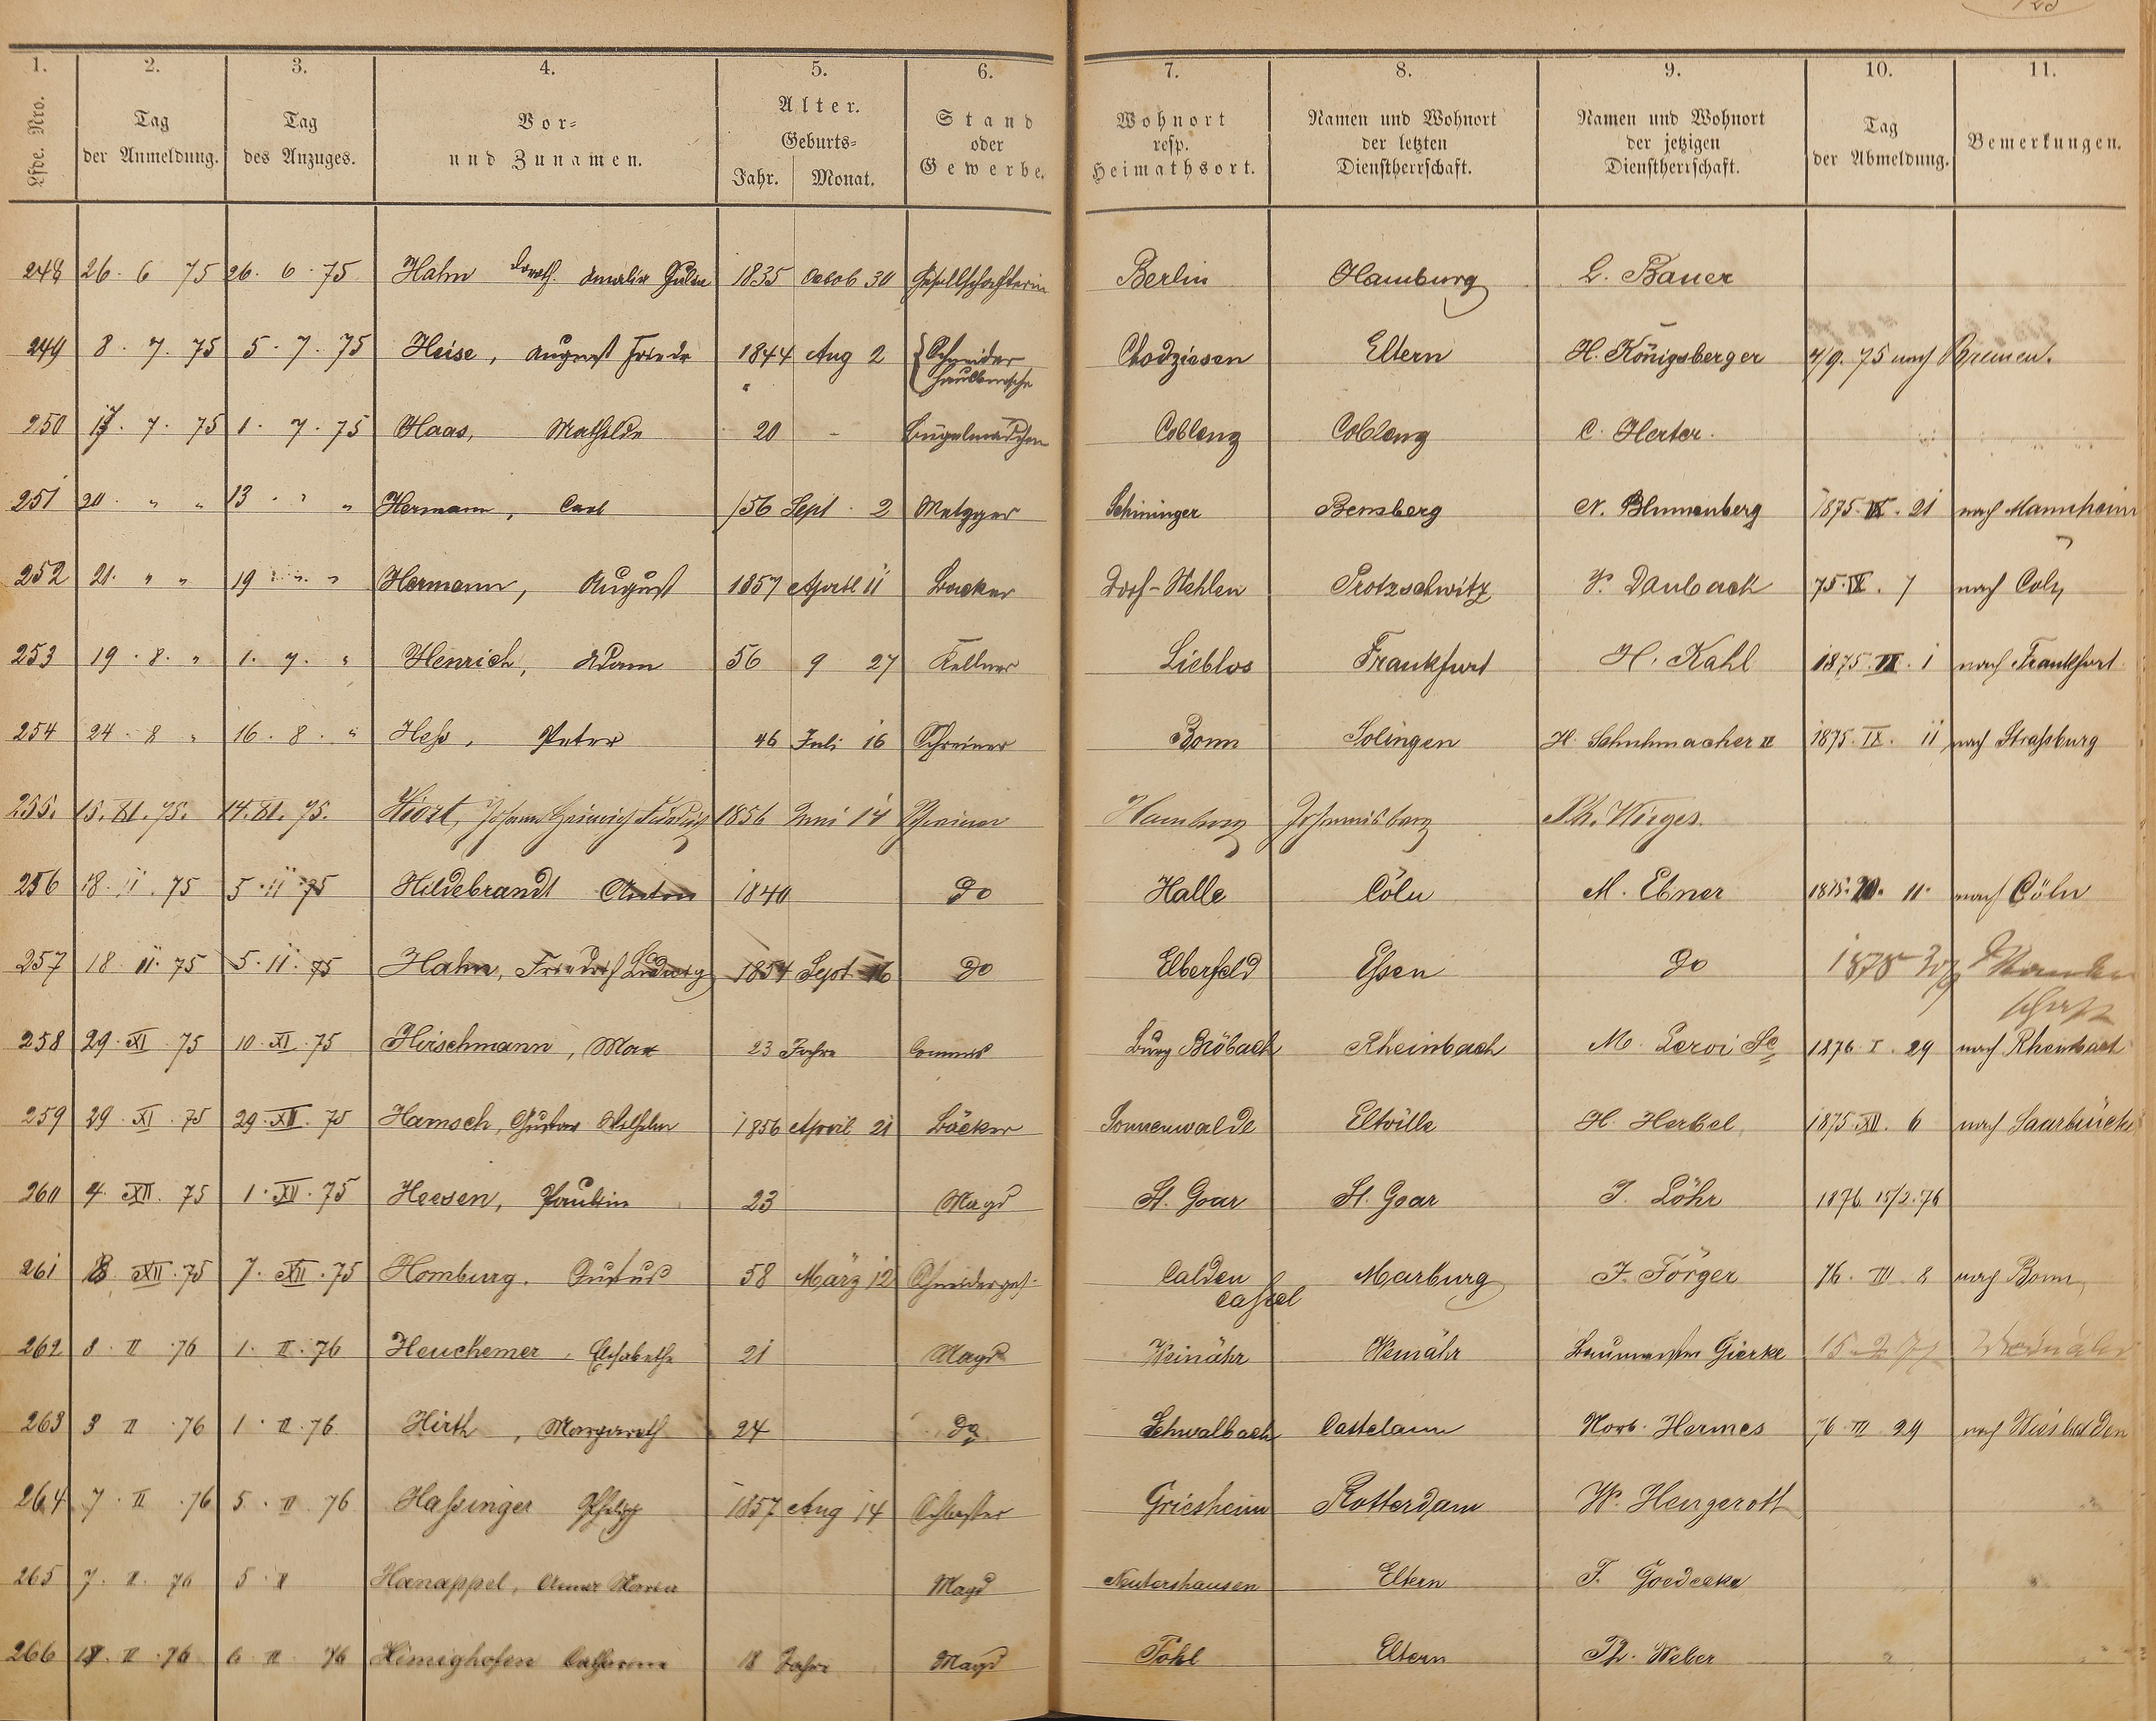 1. 2. 3. 4. 5. 6. 7. 8. 9. 10. 11.
Lfde. Nro. Tag der Anmeldung. Tag des Anzuges. Vor- und Zunamen. Alter. Geburts- Jahr. Monat. Stand oder Gewerbe. Wohnort resp. Heimathsort. Namen und Wohnort der letzten Dienstherrschaft. Namen und Wohnort der jetzigen Dienstherrschaft. Tag der Abmeldung. Bemerkungen.
248 26. 6 75 26. 6. 75 Hahn Doroth. Amalia 1835 Octob 30 Gesellschafterin Berlin Hamburg L. Bauer
249 8. 7. 75 5. 7. 75 Heise, August Friedr 1844 Aug 2 Schneider Chodziesen Eltern H. Königsberger 4/9. 75 nach Bremen.
250 7. 75 1. 7. 75 Haas, Mathilde 20 - Bügelmädchen Coblenz Coblenz C. Herter.
251 20. " " 13 . " " Hermann, Carl /56 Sept. 2 Metzger Schininger Bensberg N. Blumenberg 1875. IX. 21 nach Mannheim
252 21. " " 19 " " Hermann, August 1857 April 11 Backer Dorf-Wehlen Protzschwitz P. Daubach 75. IX. 7 nach Coln
253 19. 8. " 1. 7. " Henrich, Adam 56 9 27 Kellner Lieblos Frankfurt H. Kahl 1875. IX. 1 nach Frankfurt
254 24. 8 " 16. 8. " Heß, Peter 46 Juli 16 Schreiner Bonn Solingen H. Schuhmacher II 1875. IX. 11 nach Straßburg
255. 15. XI. 75. 14. XI. 75. Hiort, Johann Heinrich Friedrich 1856 Juni 14 Schreiner Hamburg Johannisberg Ph. Wirges.
256 18. 11. 75 5. 11 75 Hildebrandt Anton 1840 do Halle Cöln M. Ebner 1875. 20. 11. nach Cöln
257 18 11. 75 5. 11. 75 Hahn, Friedrich Ludwig 1854 Sept 16 do Elberfeld Essen do
258 29. XI 75 10. XI. 75 Hirschmann, Max 23 Jahre Commis Burg Bröbach Rheinbach M. Leroi Se 1876. I. 29 nach Rheinbach
259 29. XI. 75 29. XII. 75 Hamsch, Gustav Wilhelm 1856 April 21 Bäcker Sonnenwalde Eltville H. Herbel 1875. XII. 6 nach Saarbrücken
260 4. XII. 75 1. XII. 75 Heesen, Paulin 23 Magd St. Goar St. Goar J. Löhr 1876 15/2. 76
261 8 XII. 75 7. XII. 75 Homburg. Justus 58 März 12 Schneiderges. Calden Marburg F. Förger 76. III. 8 nach Bonn
Cassel
262 8. II. 76 1. II. 76 Heuchemer, Elisabethe 21 Magd Weinähr Weinähr Baumeister Gierke 15 2 77 Weinähr
263 3 II. 76 1. II. 76 Hirth, Margareth 24 do Schwalbach Castelaun Norb. Hermes 76. III 29 nach Wiesbaden
264 7. II. 76 5. II 76 Haßinger Philipp 1857 Aug 14 Schlosser Griesheim Rotterdam W. Hengeroth
265 7. II. 76 5. II Hanappel, Anna Maria Magd Neutershausen Eltern F. Goedecke
266 II. 76 6 II 76 Himighofen Catharina 18 Jahre Magd Pohl Eltern Ph. Weber